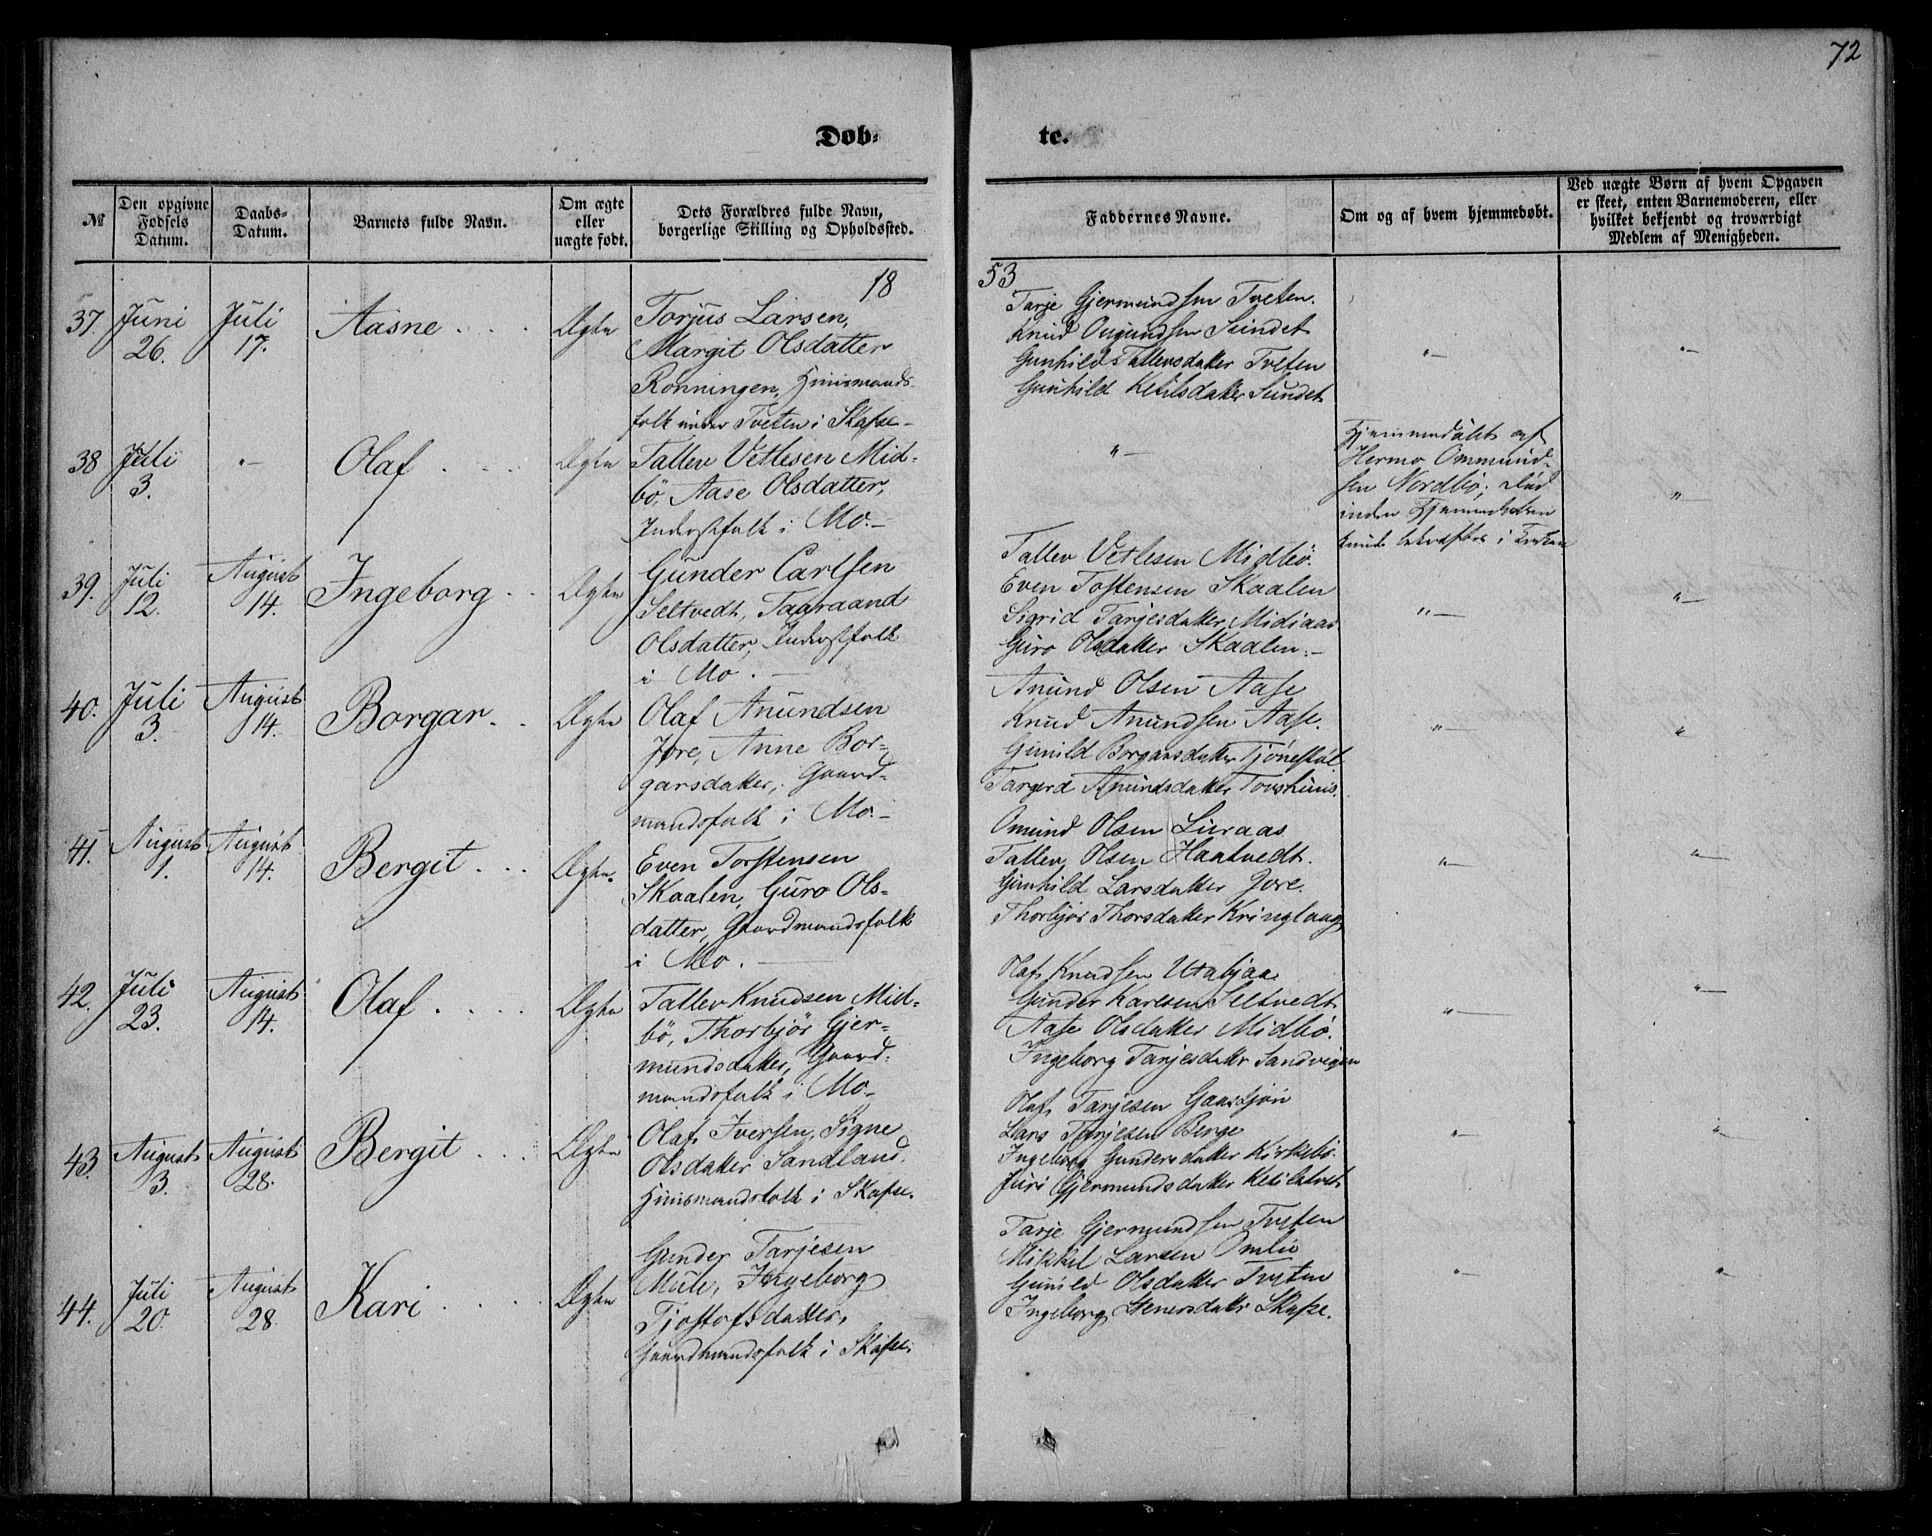 72
Døb-
te.
№
Den opgivne Fødsels Datum.
Daabs-Datum.
Barnets fulde Navn.
Om ægte eller uægte født.
Dets Forældres fulde Navn, borgerlige Stilling og Opholdssted.
Faddernes Navne.
Om og af hvem hjemmedøbt.
Ved uægte Børn af hvem Opgaven er skeet, enten Barnemoderen, eller hvilket bekjendt og troværdigt Medlem af Menigheden.
18
53
37. Juni 26. Juli 17. Aasne Ægte
Torjus Larsen,
Margit Olsdatter
Rønningen, Huusmands-
folk under Tveten i Skafse
Tarje Gjermundsen Tveten.
Knud Ougundsen Sundet
Gunhild Tallevsdatter Tveten
Gunhild Ketilsdatter Sundet
"—
"—
38 Juli 3. "— Olaf Ægte
Tallev Vetlesen Mid-
bö, Aase Olsdatter,
Inderstfolk i Mo.—
"—
Hjemmedöbt af
Hermo Ommund-
sen Nordbö; död
inden Hjemmedaaben
kunde bekræftes i Kirken
"—
39. Juli 12. August 14. Ingeborg Ægte
Gunder Carlsen
Seltvedt, Taaraand
Olsdatter, Inderstfolk
i Mo.
Tallev Vetlesen Midbö.
Even Tostensen Skaalen
Sigrid Tarjesdatter Midiaas
Guro Olsdatter Skaalen.—
"—
"—
40. Juli 3. August 14. Borgar Ægte
Olaf Anundsen
Jore, Anne Bor-
garsdatter, Gaard-
mandsfolk i Mo.—
Anund Olsen Aase
Knud Anundsen Aase.
Gunild Borgarsdatter Tjönestöl
Targerd Anundsdatter Tovshuus.
"—
"
41. August 1. August 14. Bergit Ægte.
Even Torstensen
Skaalen, Guro Ols-
datter, Gaardmandsfolk
i Mo.
Omund Olsen Liuraas
Tallev Olsen Haatvedt.
Gunhild Larsdatter Jore.
Thorbjör Thorsdatter Kringlaug
"—
"—
42. Juli 23. August 14. Olaf Ægte
Tallev Knudsen Mid-
bö, Thorbjör Gjer-
mundsdatter, Gaard-
mandsfolk i Mo.
Olaf Knudsen Utabjaa
Gunder Karlsen Seltvedt
Aase Olsdatter Midbö.
Ingeborg Tarjesdattr Sandvigen
"—
"—
43. August 3. August 28. Bergit Ægte
Olaf Iversen, Signe
Olsdatter Sandland.
Huusmandsfolk i Skafse.
Olaf Tarjesen Gaasbjön
Lars Tarjesen Berge
Ingeborg Gundersdatter Kirkebö
Juri Gjermundsdatter Ketilstvet
"—
"—
44. Juli 20. August 28. Kari Ægte
Gunder Tarjesen
Mule, Ingeborg
Tjostofsdatter,
Gaardmandsfolk i Skafse.
Tarje Gjermundsen Tveten
Mikkel Larsen Omlie
Gunild Olsdatter Tveten
Ingeborg Stenersdattr Skafse.
"—
"